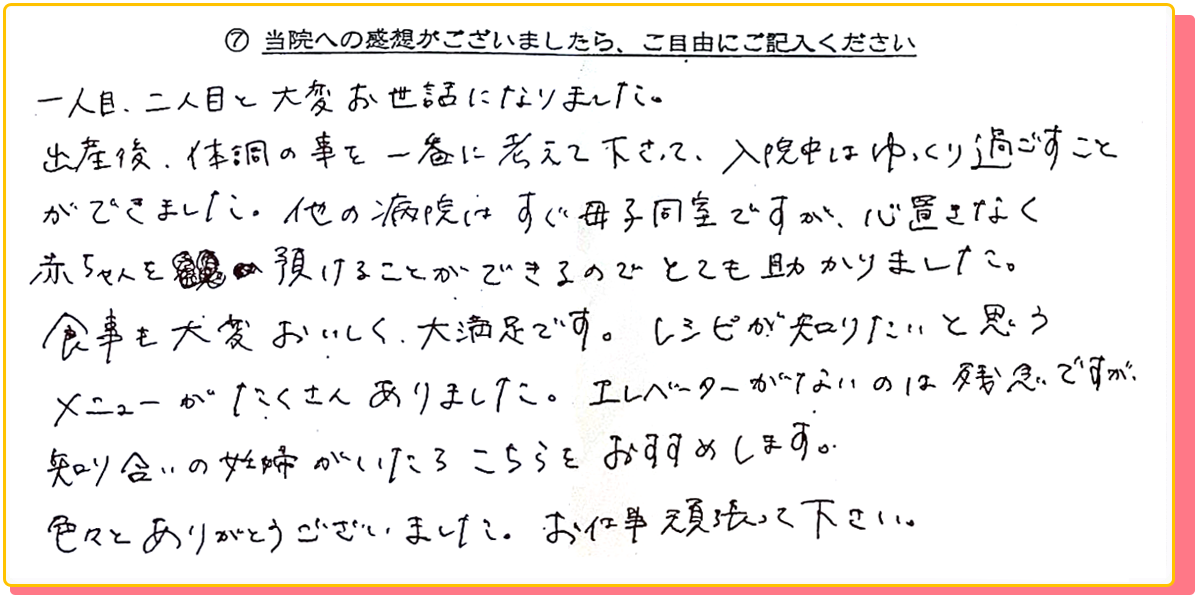 ⑦ 当院への感想がございましたら、ご自由にご記入ください
一人目、二人目と大変お世話になりました。
出産後、体調の事を一番に考えて下さって、入院中はゆっくり過ごすこと
ができました。他の病院はすぐ母子同室ですが、心置きなく
赤ちゃんを預けることができるのでとても助かりました。
食事も大変おいしく、大満足です。レシピが知りたいと思う
メニューがたくさんありました。エレベーターがないのは残念ですが、
知り合いの妊婦がいたらこちらをおすすめします。
色々とありがとうございました。お仕事頑張って下さい。